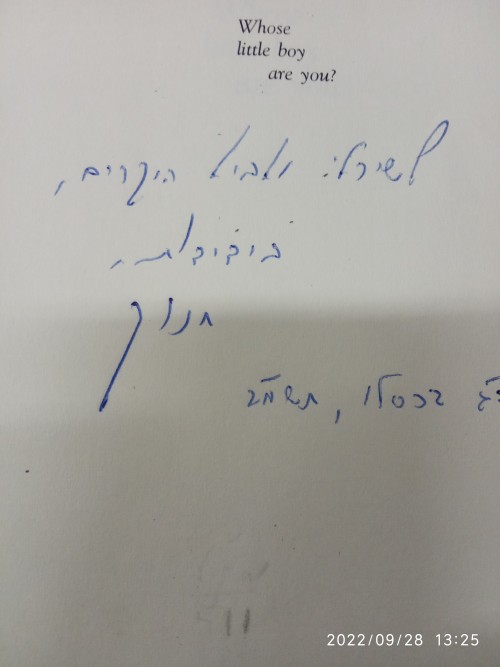 Whose
little boy
are you?
לשירלי ואביא היקרים,
בידידות,
חנוך
בכסלו, תשמ"ב
11
2022/09/28 13:25